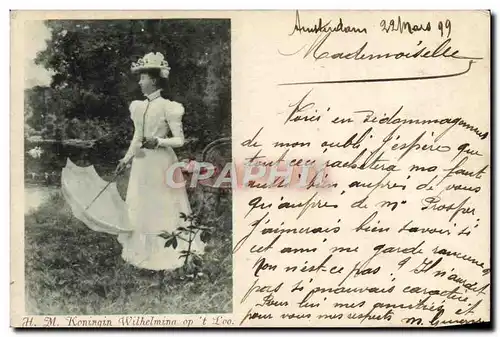 Amsterdam 22 Mars 99
Mademoiselle
Voici en dédommagement
de mon oubli j'espère que
tout ceci rachètera ma faute
aussi bien auprès de vous
qu'auprès de Mr Prosper
j'aimerais bien savoir si
cet ami me garde rancune
Non n'est-ce pas? Il n'aurait
pas si mauvais caractère,
Pour lui mes amitiés et
pour vous mes respects M.
CPArama.com
H. M. Koningin Wilhelmina op 't Loo.